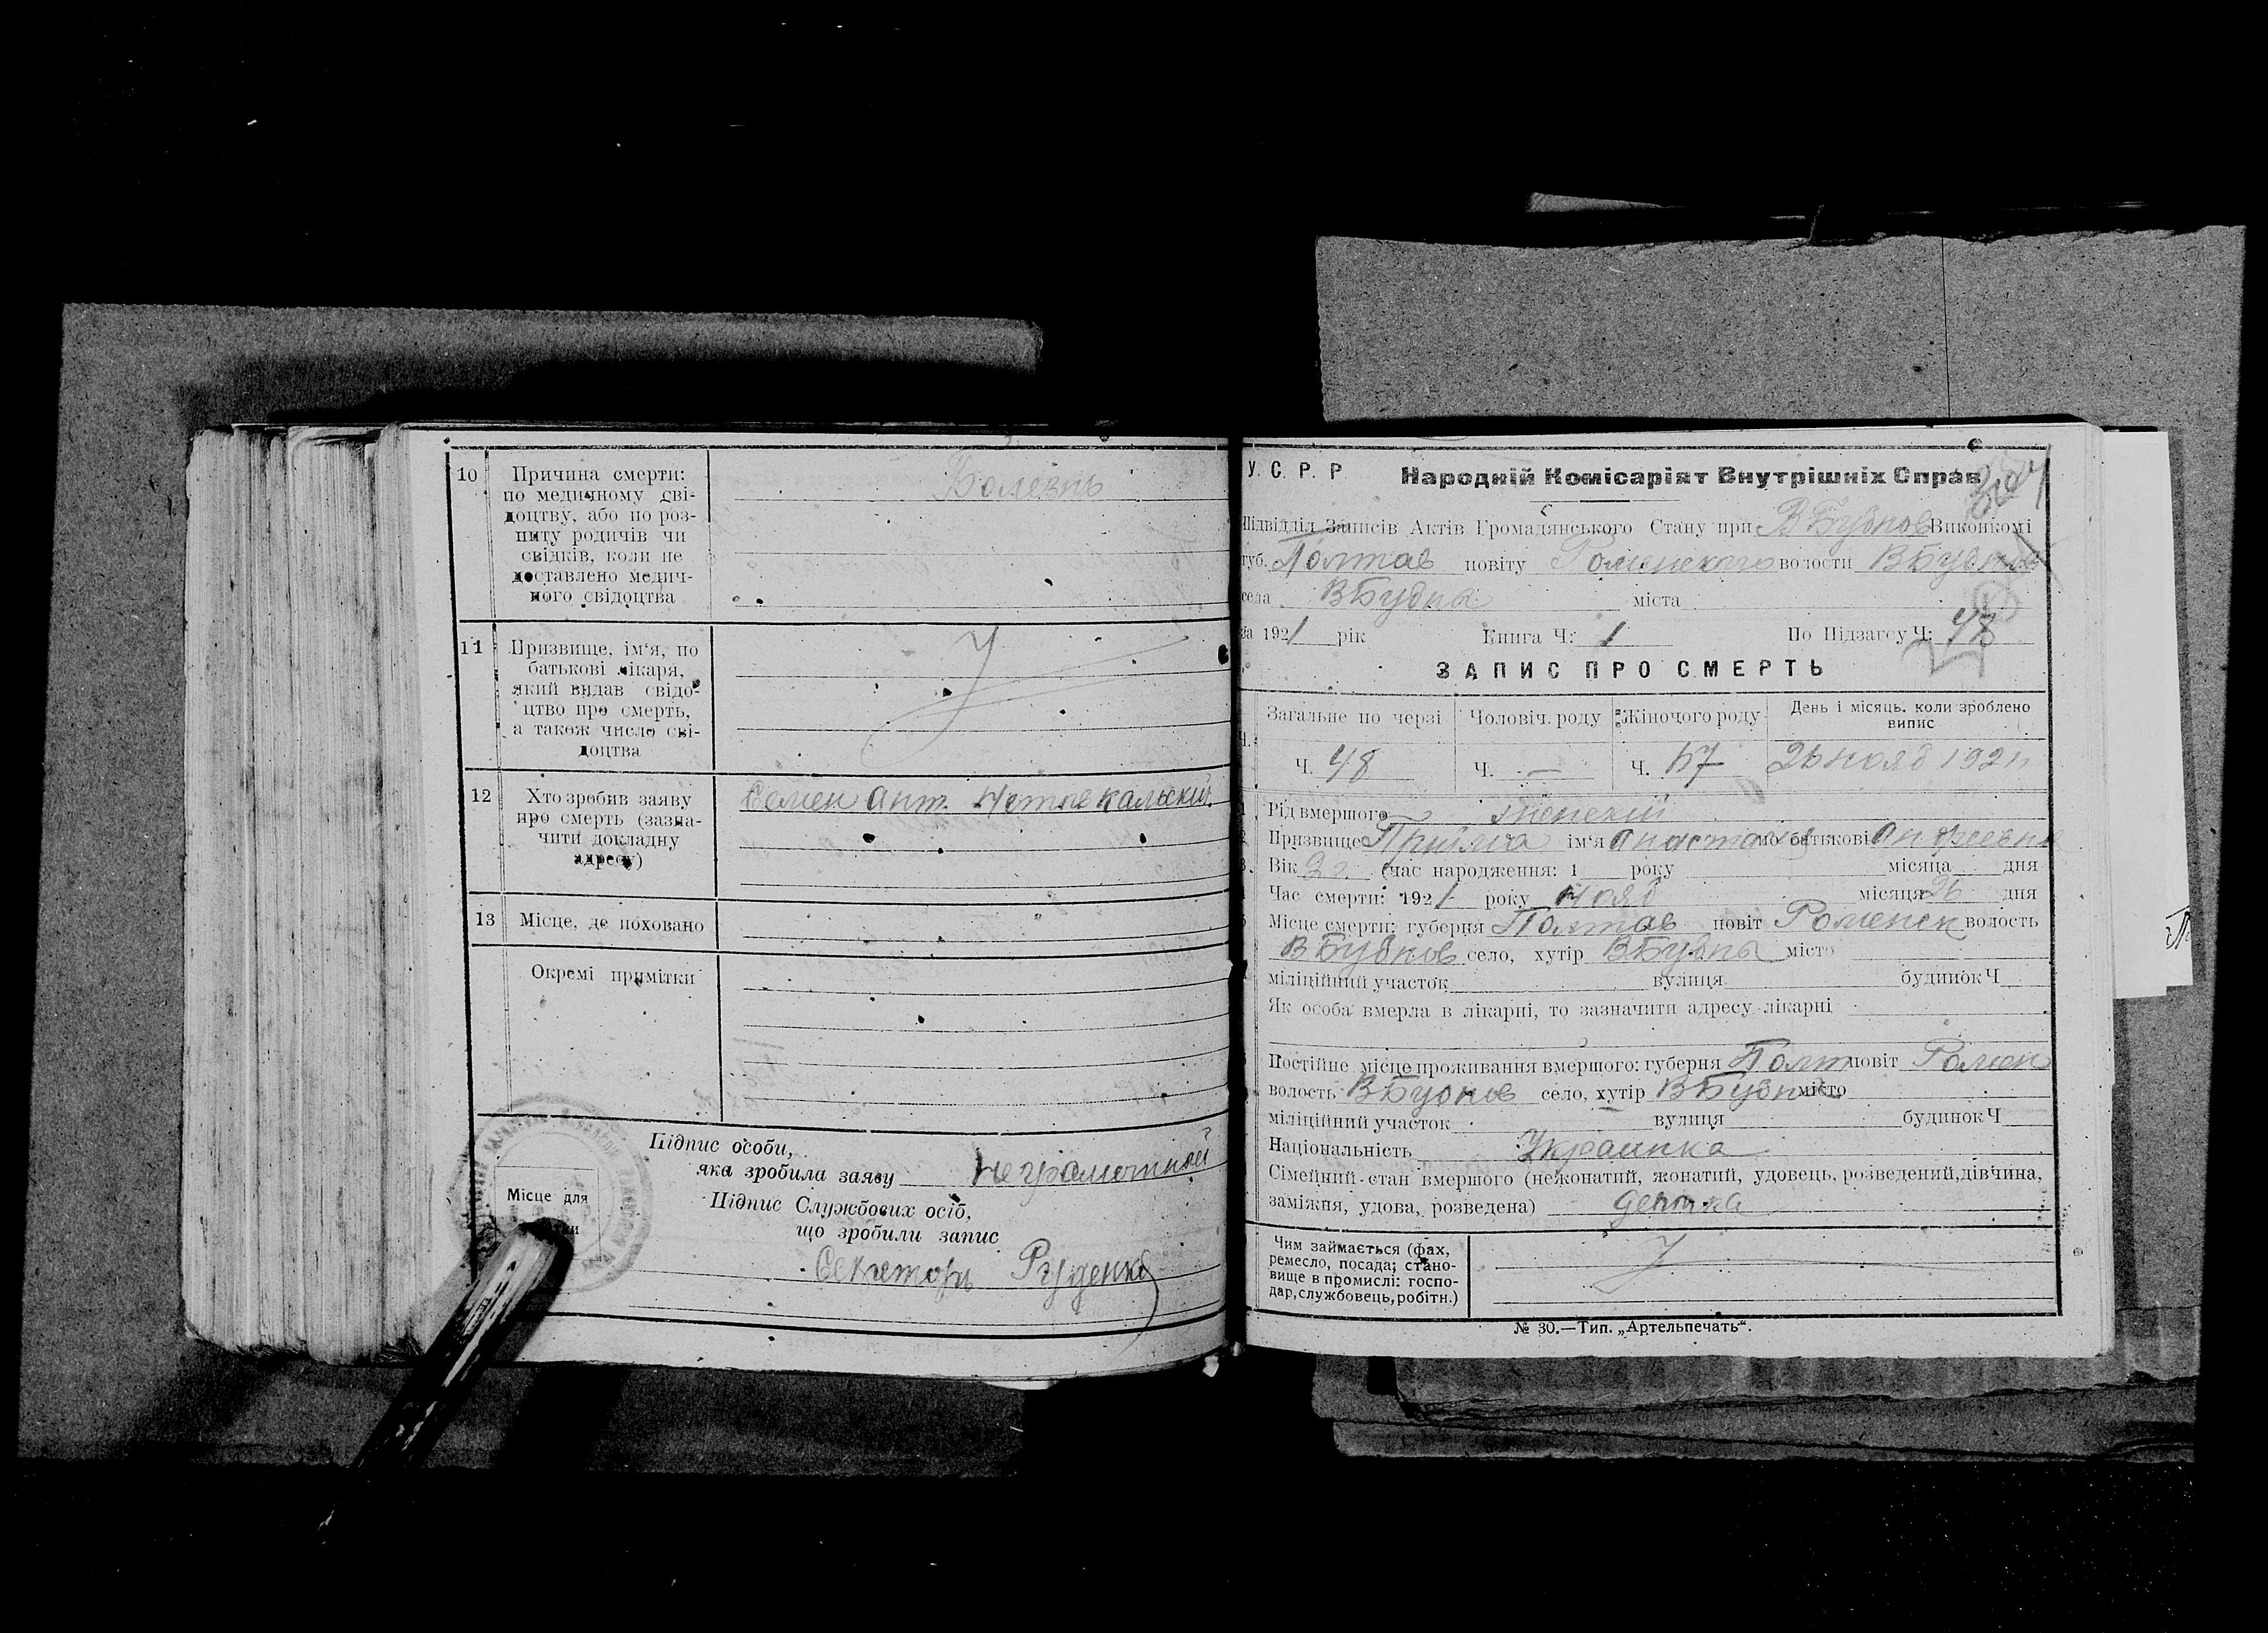 10 Причина смерти: Болезнь
по медичному сві-
доцтву, або по роз-
питу родичів чи
свідків, коли не
доставлено медич-
ного свідоцтва
11 Призвище, ім'я, по
батькові лікаря,
який видав свідо-
цтво про смерть,
а також число сві-
доцтва
12 Хто зробив заяву Семен Ант.
про смерть (зазна-
чити докладну
адресу)
13 Місце, де поховано
Окремі примітки
Підпис особи,
яка зробила заяву неграмотный
Місце для
Підпис Службових осіб,
що зробили запис
Секретарь Руденко
У. С. Р. Р. Народній Комісаріят Внутрішніх Справ
Підвідділ Записів Актів Громадянського Стану при ВБубнов Виконкомі
губ. Полтав повіту Роменского волости ВБубнов
села ВБубны міста
за 1921 рік Книга Ч: 1 По Підзагсу Ч: 48
ЗАПИС ПРО СМЕРТЬ
Загальне по черзі Чоловіч. роду Жіночого роду День і місяць, коли зроблено
випис
Ч. 48 Ч. — Ч. 26 нояб 1921
Рід вмершого женский
Призвище Прийма ім'я Анастасия по батькові Андреевна
Вік 2 г. (час народження: 1 року місяца дня
Час смерти: 1921 року нояб місяця 26 дня
Місце смерти: губерня Полтав повіт Роменск волость
ВБубнов село, хутір ВБубны місто
міліційний участок вулиця будинок Ч
Як особа вмерла в лікарні, то зазначити адресу лікарні
Постійне місце проживання вмершого: губерня Полт повіт Ромен
волость ВБубнов село, хутір ВБубны місто
міліційний участок вулиця будинок Ч
Національність Украинка
Сімейний стан вмершого (нежонатий, жонатий, удовець, розведений, дівчина,
заміжня, удова, розведена)
Чим займається (фах,
ремесло, посада; стано-
вище в промислі: госпо-
дар, службовець, робітн.)
№ 30.—Тип. „Артельпечать“.